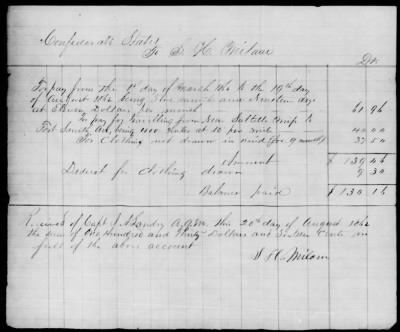 Confederate States
To S. H. Milam
Drs.
To pay from the 1st day of March 1862 to the 19th day
of August 1862 being five months and nineteen days
at Eleven Dollars per month 61 96
To pay for travelling from Camp to
Fort Smith Ark, being 400 miles at 10 per mile 40 00
For Clothing not drawn in kind (for 9 months) 37 50
Amount $ 139 46
Deduct for clothing drawn 9 30
Balance paid $ 130 16
Received of Capt. J. A. Landry A.Q.M. this 20th day of August 1862
the sum of One Hundred and Thirty Dollars and Sixteen Cents in
full of the above account
S. H. Milam